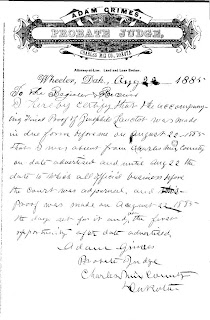 ADAM GRIMES
PROBATE JUDGE,
CHARLES MIX CO. DAKOTA
Attorney-at-Law, Land and Loan Broker.
Wheeler, Dak., Aug 22 1885
To the Register & Receiver
I hereby certify that the accompany-
ing Final Proof of Locator was made
in due form before me on August 22 1885
that I was absent from Charles Mix County
on date advertised and until Aug 22 the
date to which all official business before
the court was adjourned, and
Proof was made on August 22 1885
the day set for it and the first
opportunity after date advertised.
Adam Grimes
Probate Judge
Charles Mix County
Dakota